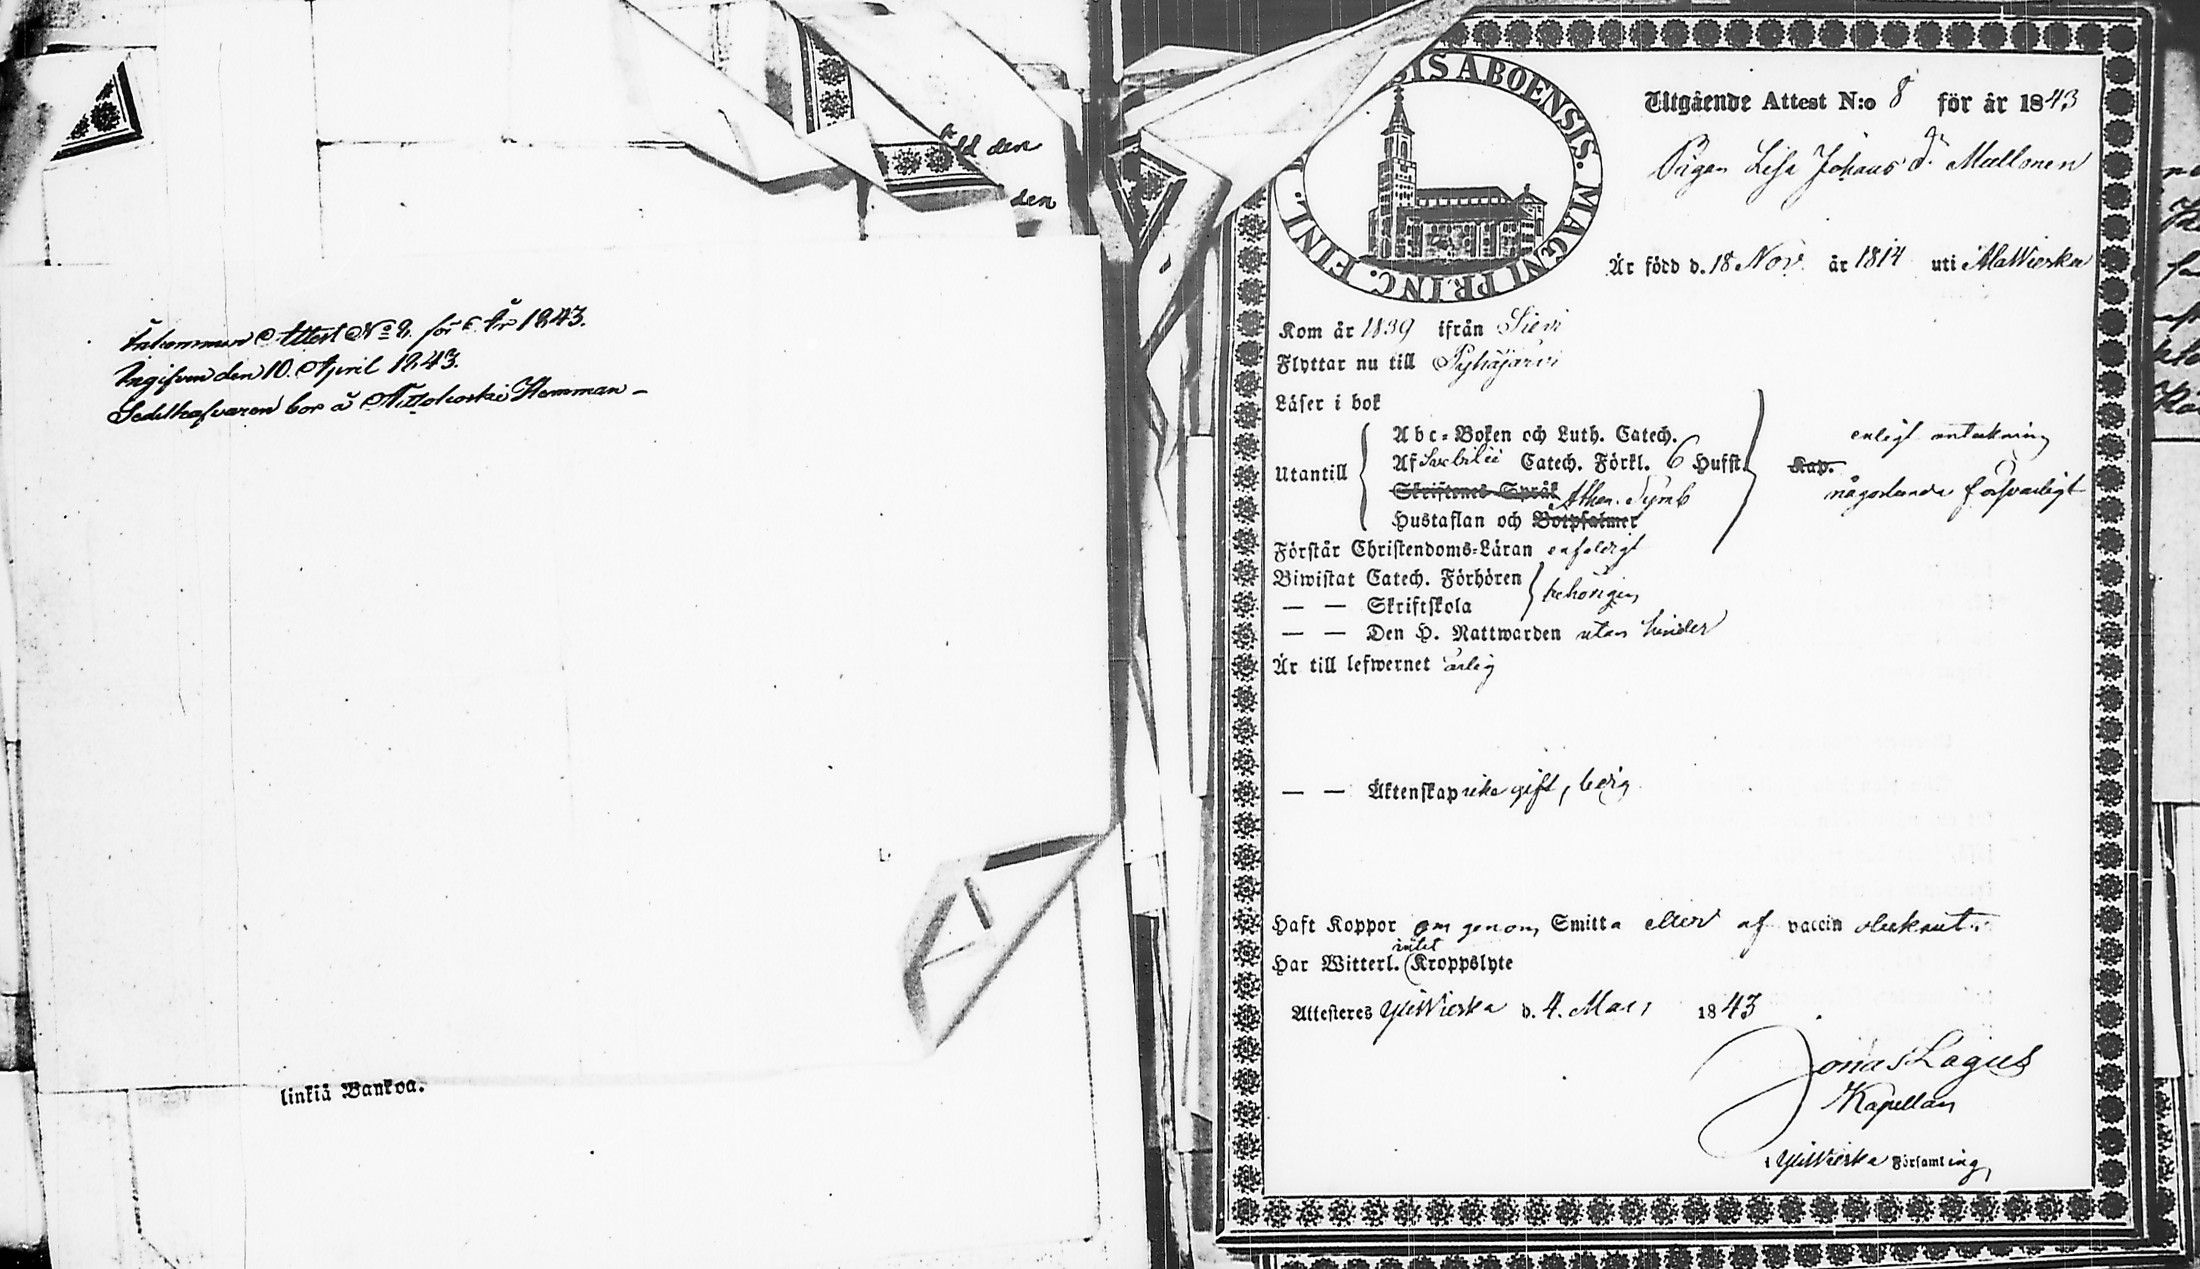 ld den
den
Inkommen Attest No 8. för År 1843.
Ingifven den 10. April 1843.
Sedelhafvaren bor å Hemman –
linkiä Bankoa.
SIS ABOENSIS. MAGNI PRINC. FINL.
Utgående Attest N:o 8 för år 1843
Pigan Lisa Johans dr Mallonen
Är född d. 18 Nov. år 1814 uti AlaWieska
Kom år 1839 ifrån Sievi
Flyttar nu till Pyhäjärvi
Läser i bok
Abc-Boken och Luth. Catech.
enligt anteckning
Utantill
Af Svebilii Catech. Förkl. 6 Hufst.
Kap.
någorlunda försvarligt
Skriftenes Språk Athan. Symb
Hustaflan och Botpsalmer
Förstår Christendoms-Läran enfaldigt
Biwistat Catech. Förhören
behörigen
— — Skriftskola
— — Den H. Nattwarden utan hinder
Är till lefwernet ärlig
— — Äktenskap icke gift, ledig
Haft Koppor om genom Smitta eller af vaccin obekant.
intet
Har Witterl. Kroppslyte
Attesteres YliWieska d. 4. Mars 1843
Jonas Lagus
Kapellan
i YliWieska Församling,